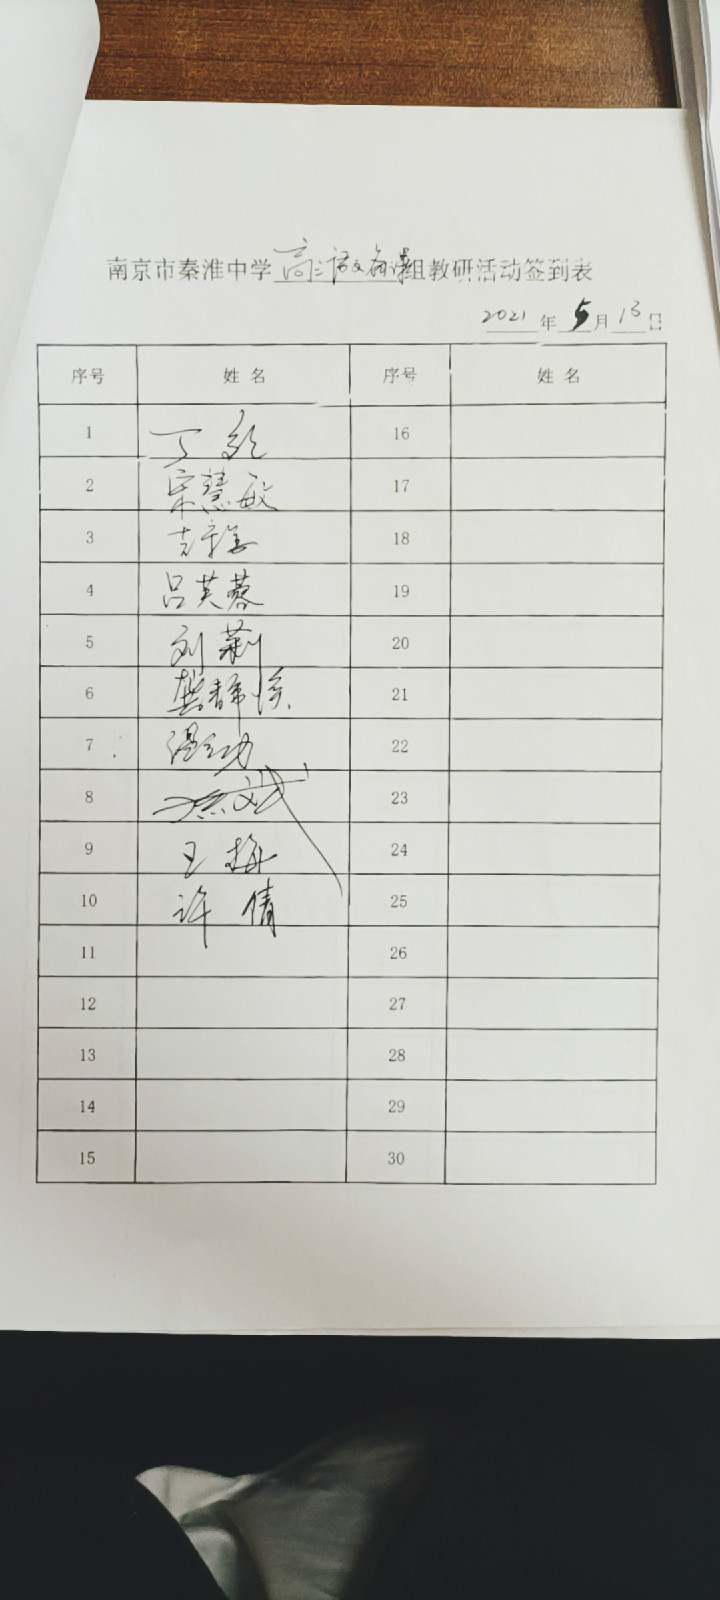 南京市秦淮中学高三语文备课组教研活动签到表
2021年5月13日
序号 姓名 序号 姓名
1 丁 16
2 宋慧敏 17
3 18
4 吕芙蓉 19
5 刘莉 20
6 龚静溪 21
7 温红功 22
8 斌 23
9 王梅 24
10 许倩 25
11 26
12 27
13 28
14 29
15 30